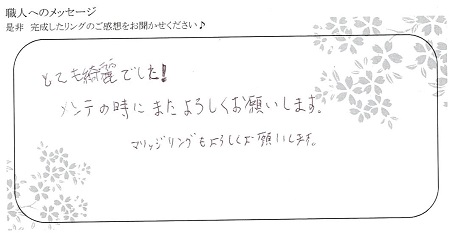 職人へのメッセージ
是非 完成したリングのご感想をお聞かせください♪
とても綺麗でした!
メンテの時にまたよろしくお願いします。
マリッジリングもよろしくお願いします。